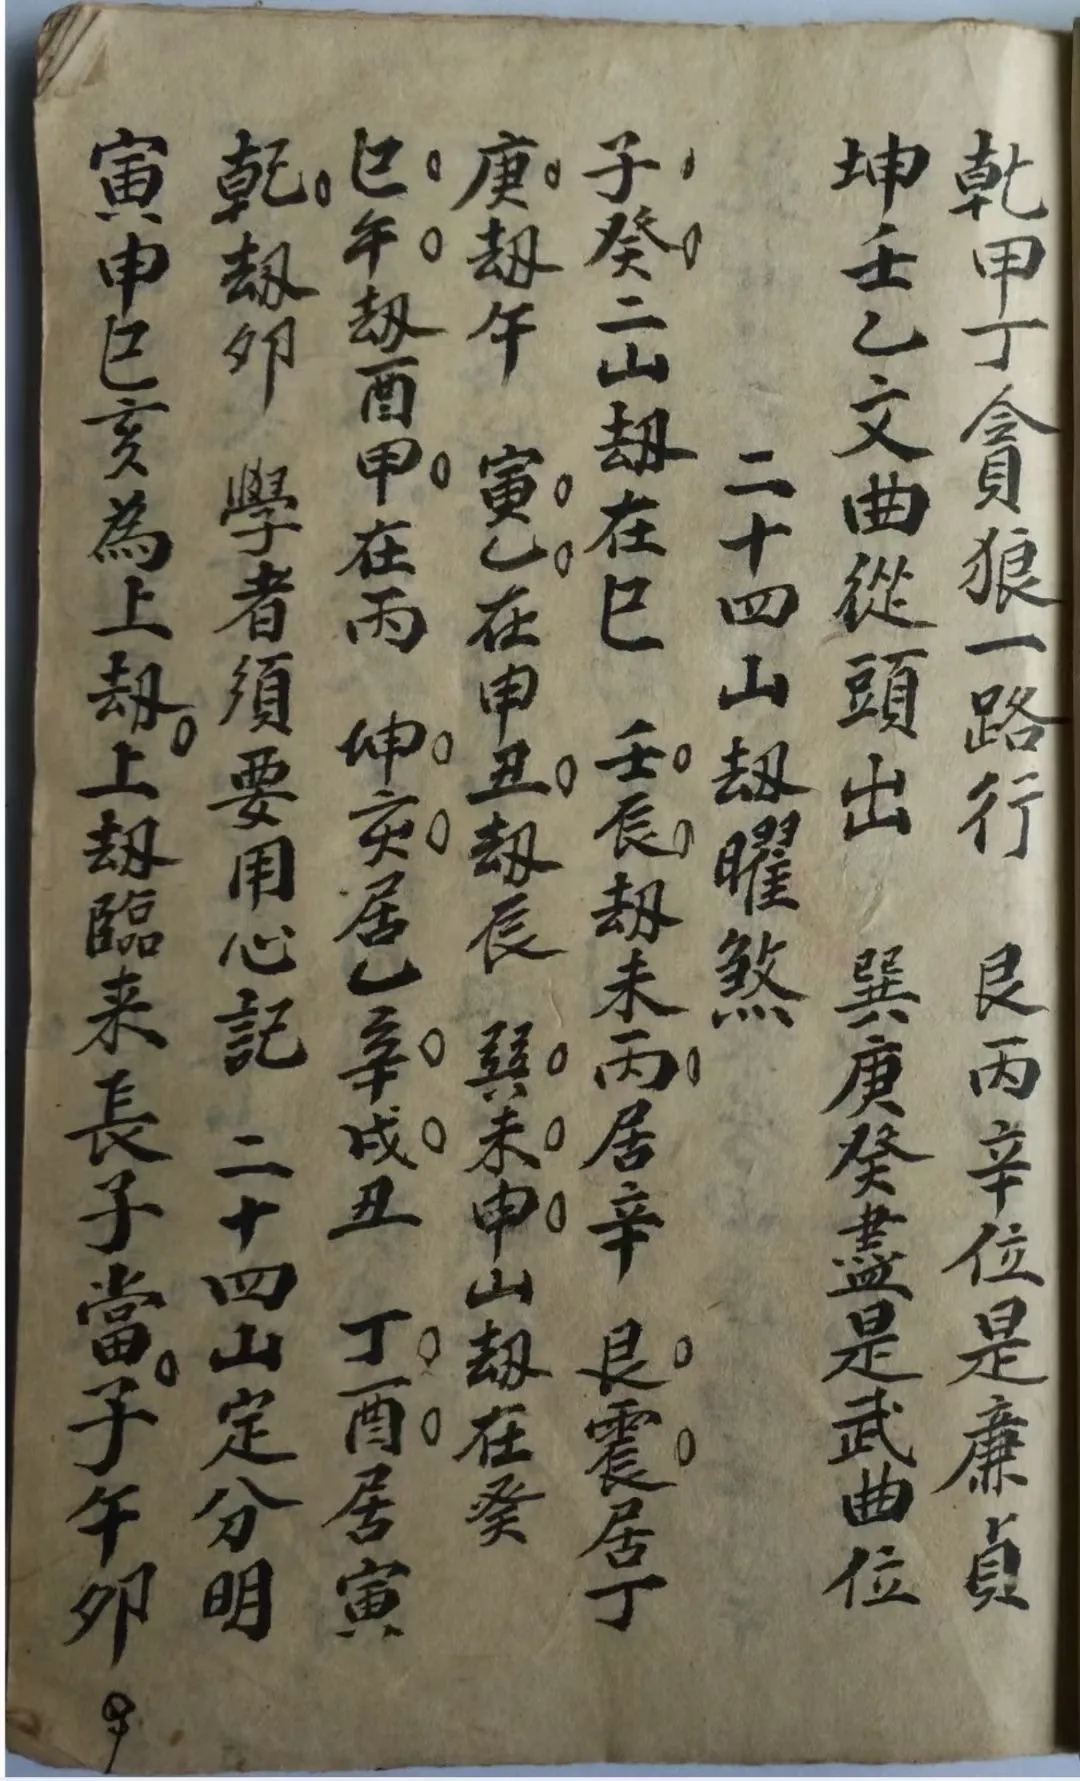 乾甲丁貪狼一路行　艮丙辛位是廉貞
坤壬乙文曲從頭出　巽庚癸盡是武曲位
二十四山刼曜煞
子癸二山刼在巳　壬辰刼未丙居辛　艮震居丁
庚刼午　寅乙在申丑刼辰　巽未申山刼在癸
巳午刼酉甲在丙　坤亥居乙辛戌丑　丁酉居寅
乾刼卯　學者須要用心記　二十四山定分明
寅申巳亥為上刼上刼臨来長子當子午卯